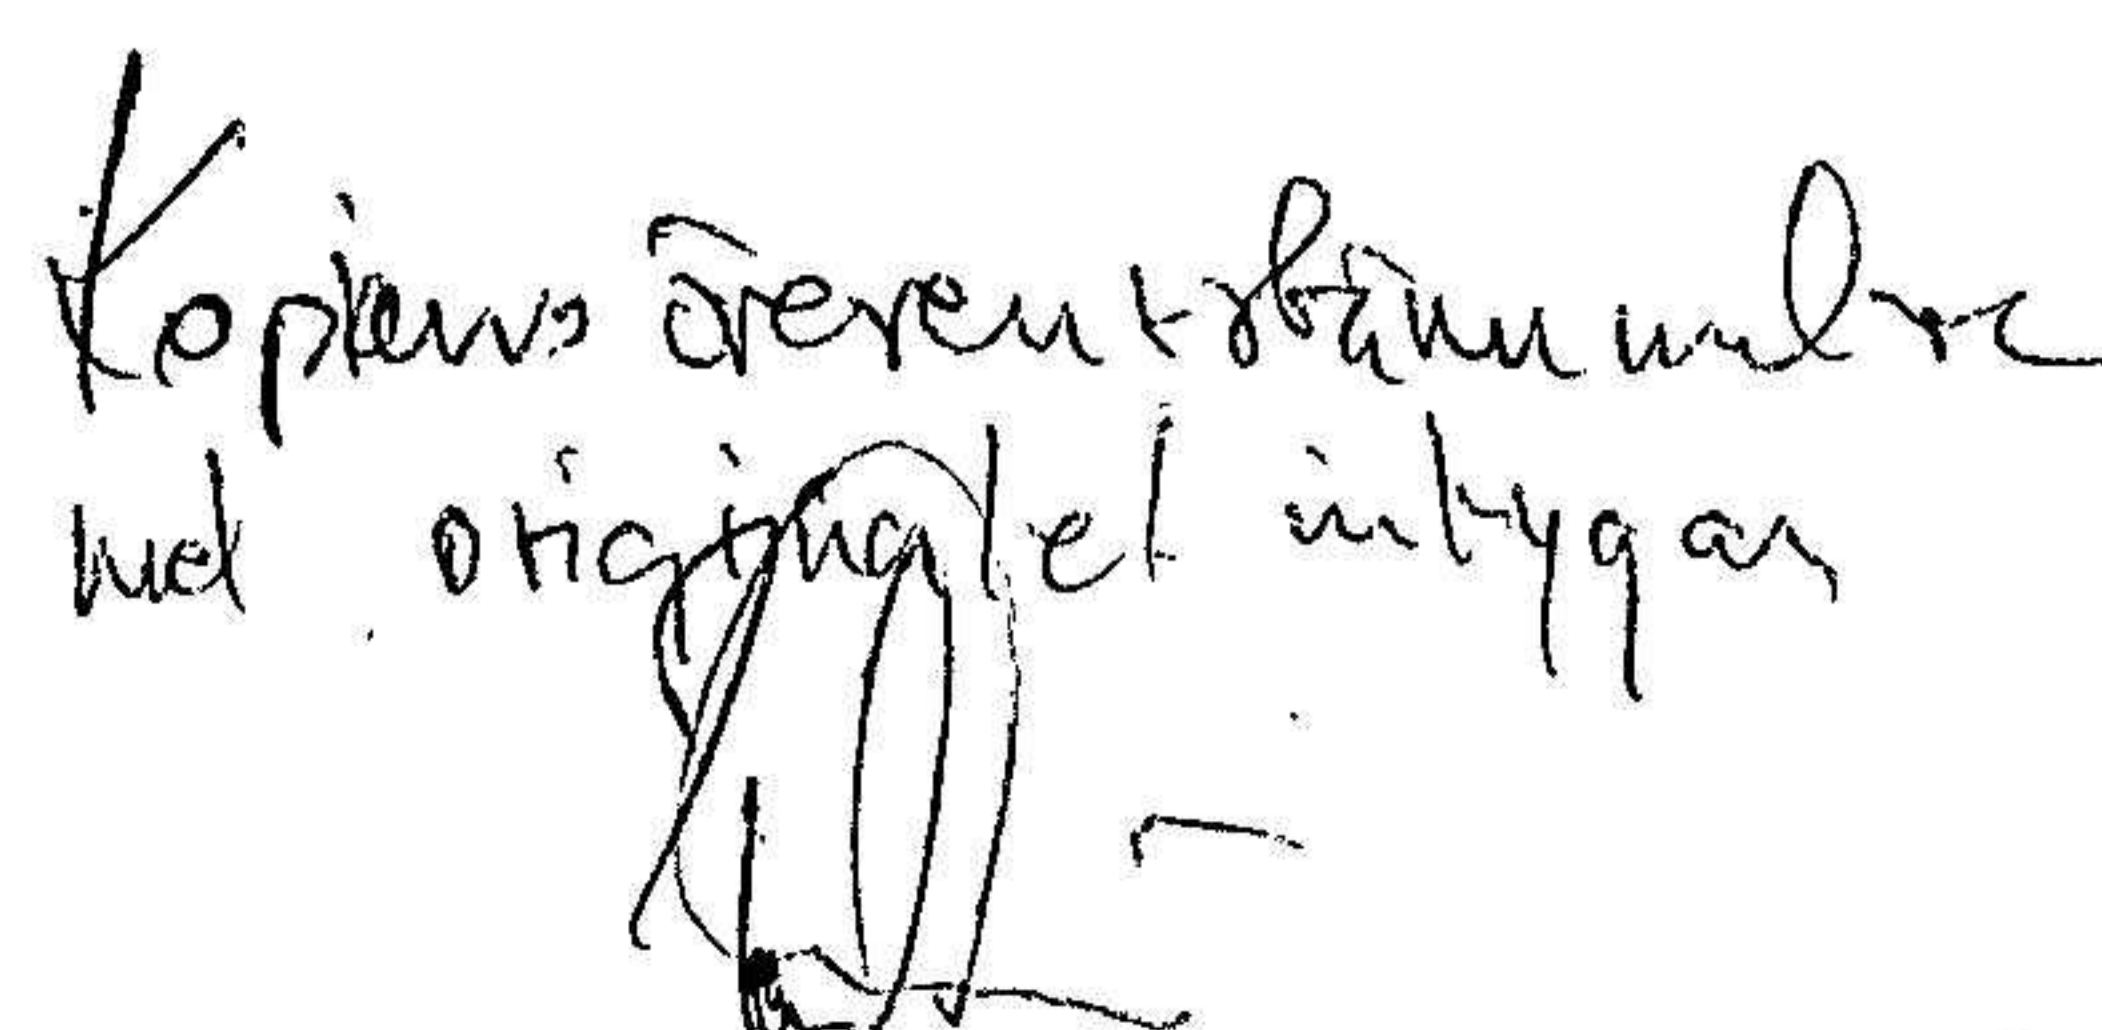 Kopians överensstämmelse
med originalet intygas